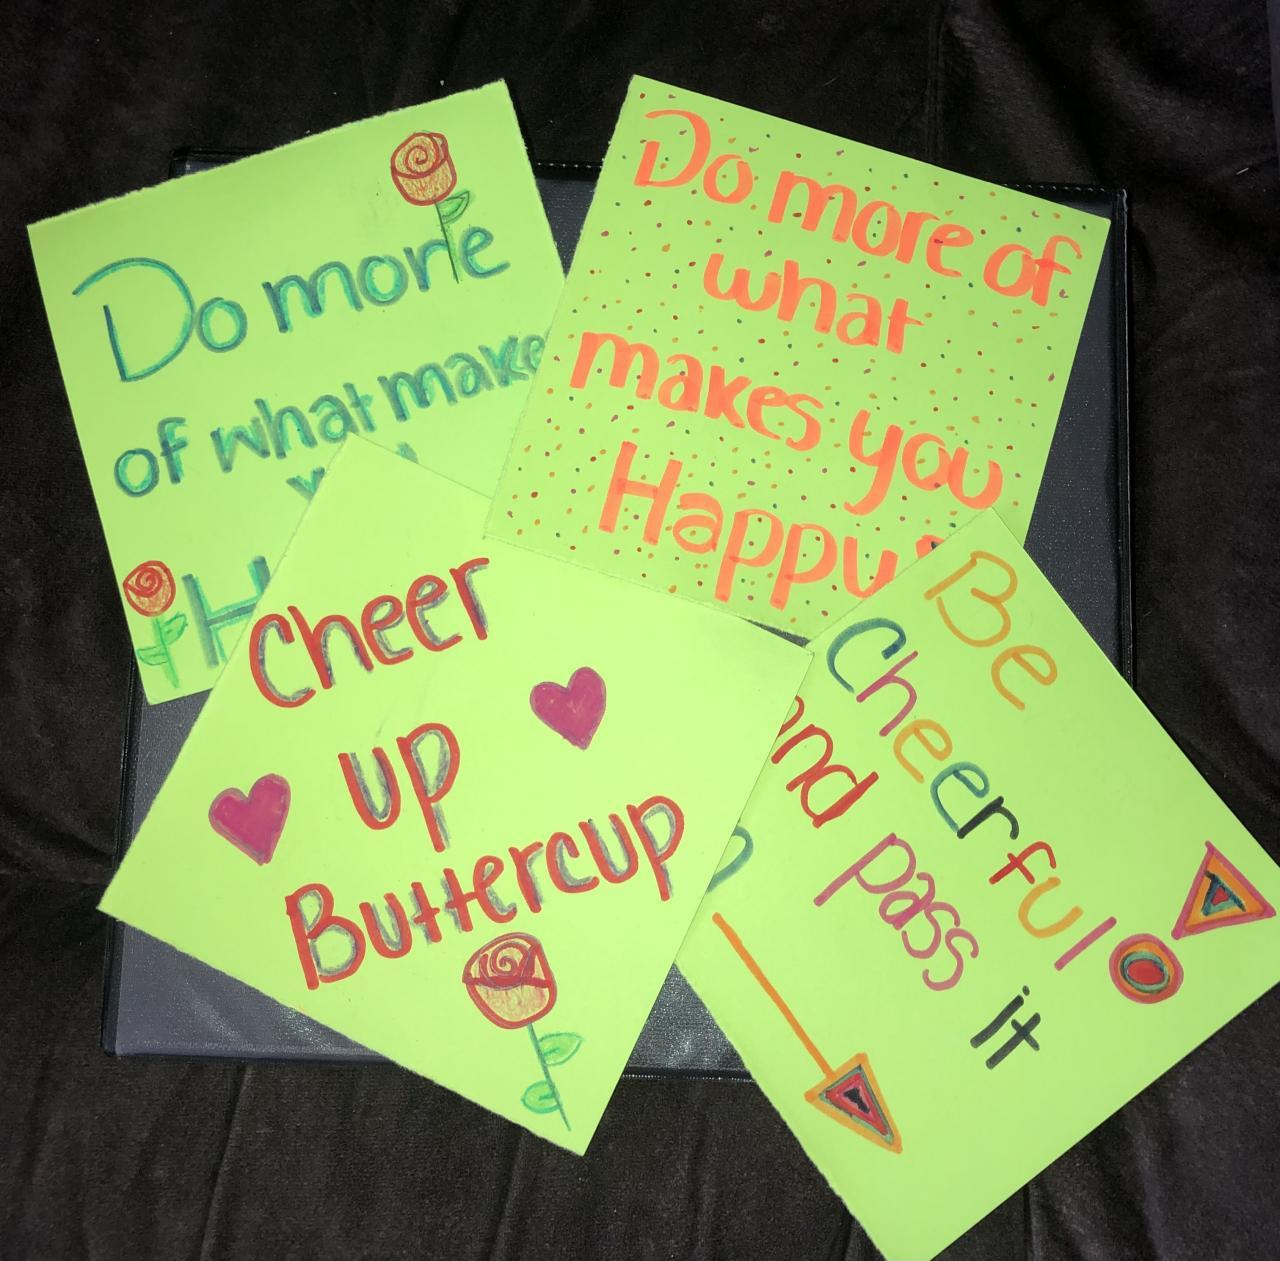 Do more
of what make
H
Do more of
what
makes you
Happy
Cheer
up
Buttercup
Be
Cheerful
and pass
it